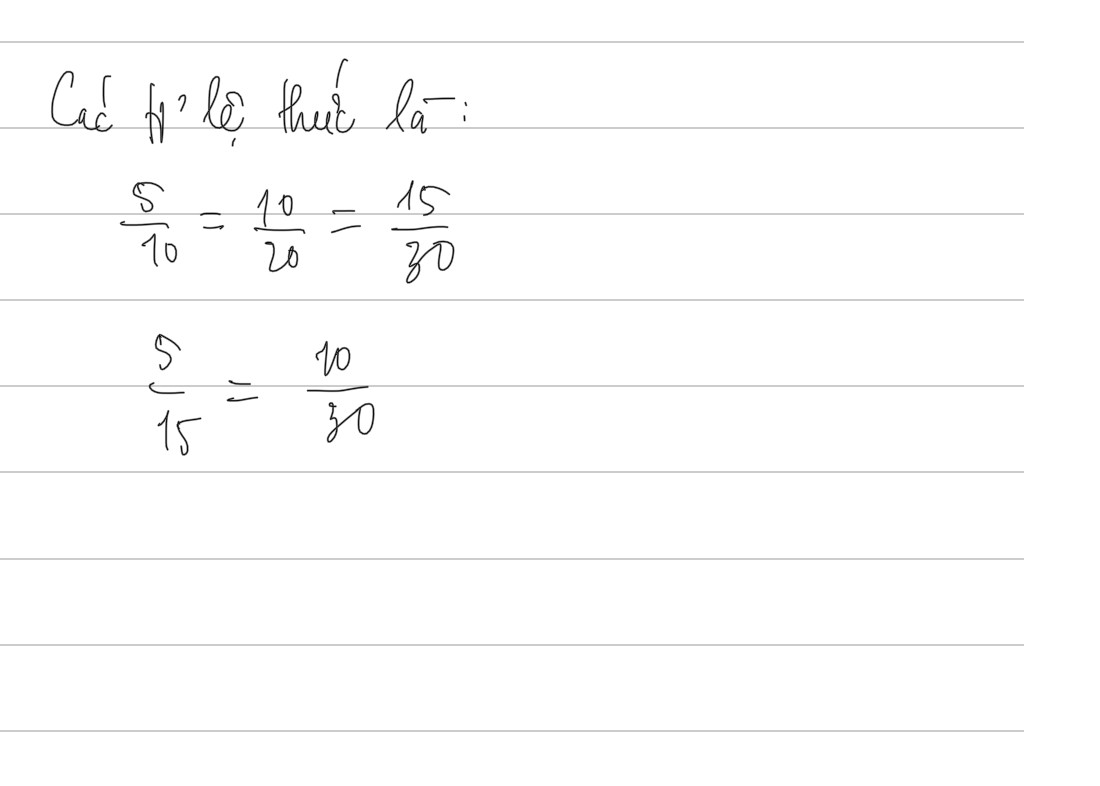 Các tỷ lệ thức là:
5/10 = 10/20 = 15/30
5/15 = 10/30